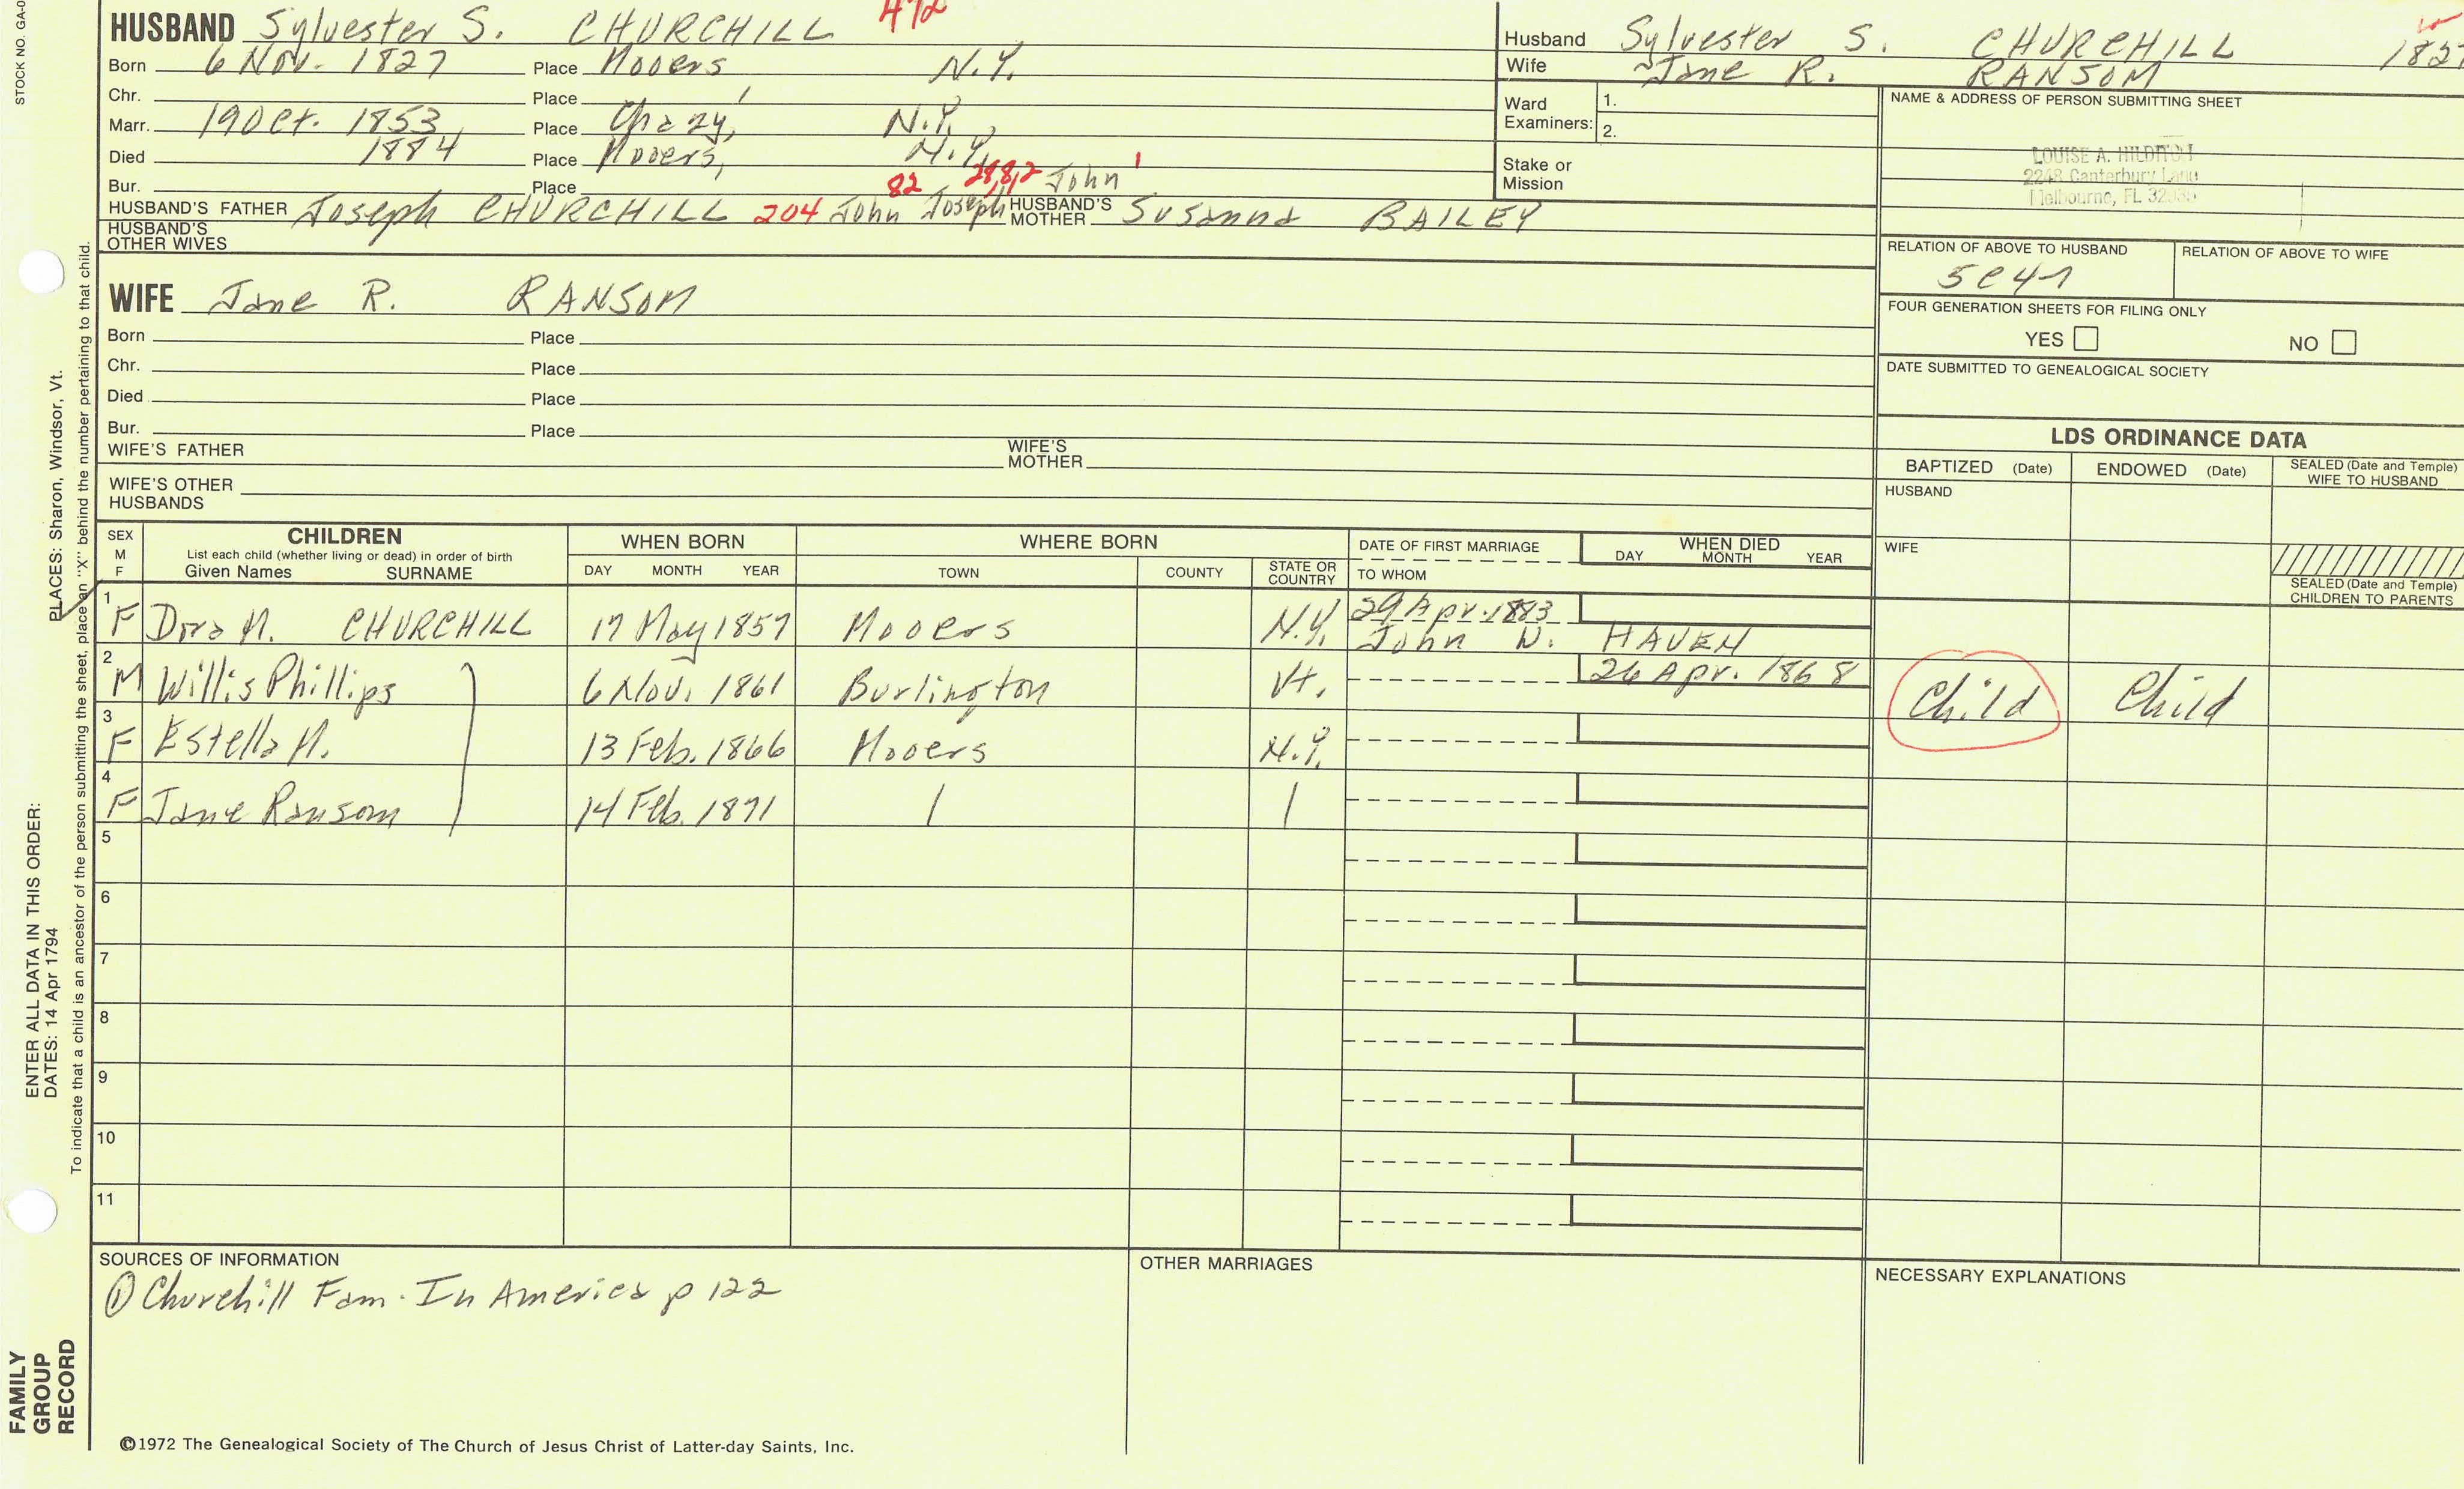 STOCK NO. GA-0
HUSBAND Sylvester S. CHURCHILL 472
Born 6 Nov. 1827 Place Mooers N.Y.
Chr. Place
Marr. 19 Oct. 1853 Place Chazy, N.Y.
Died 1884 Place Mooers, N.Y.
Bur. Place 82 John
HUSBAND'S FATHER Joseph CHURCHILL 204 John Joseph HUSBAND'S MOTHER Susanna BAILEY
HUSBAND'S OTHER WIVES
WIFE Jane R. RANSOM
Born Place
Chr. Place
Died Place
Bur. Place
WIFE'S FATHER WIFE'S MOTHER
WIFE'S OTHER HUSBANDS
Husband Sylvester S. CHURCHILL 182
Wife Jane R. RANSOM
Ward Examiners: 1.
2.
Stake or Mission
NAME & ADDRESS OF PERSON SUBMITTING SHEET
LOUISE A. HILDITCH
2248 Canterbury Lane
Melbourne, FL
RELATION OF ABOVE TO HUSBAND RELATION OF ABOVE TO WIFE
5C4R
FOUR GENERATION SHEETS FOR FILING ONLY
YES NO
DATE SUBMITTED TO GENEALOGICAL SOCIETY
LDS ORDINANCE DATA
BAPTIZED (Date) ENDOWED (Date) SEALED (Date and Temple) WIFE TO HUSBAND
HUSBAND
WIFE
SEALED (Date and Temple) CHILDREN TO PARENTS
SEX M F CHILDREN WHEN BORN WHERE BORN DATE OF FIRST MARRIAGE WHEN DIED
List each child (whether living or dead) in order of birth
Given Names SURNAME DAY MONTH YEAR TOWN COUNTY STATE OR COUNTRY TO WHOM DAY MONTH YEAR
1 F Dora M. CHURCHILL 17 May 1857 Mooers N.Y. 29 Apr. 1883
John W. HAVEN
2 M Willis Phillips 6 Nov. 1861 Burlington Vt. 26 Apr. 1868 Child Child
3 F Estella M. 13 Feb. 1866 Mooers N.Y.
4 F Jane Ransom 14 Feb. 1871
5
6
7
8
9
10
11
SOURCES OF INFORMATION
① Churchill Fam. In America p 122
OTHER MARRIAGES
NECESSARY EXPLANATIONS
©1972 The Genealogical Society of The Church of Jesus Christ of Latter-day Saints, Inc.
ENTER ALL DATA IN THIS ORDER:
DATES: 14 Apr 1794 PLACES: Sharon, Windsor, Vt.
To indicate that a child is an ancestor of the person submitting the sheet, place an "X" behind the number pertaining to that child.
FAMILY
GROUP
RECORD